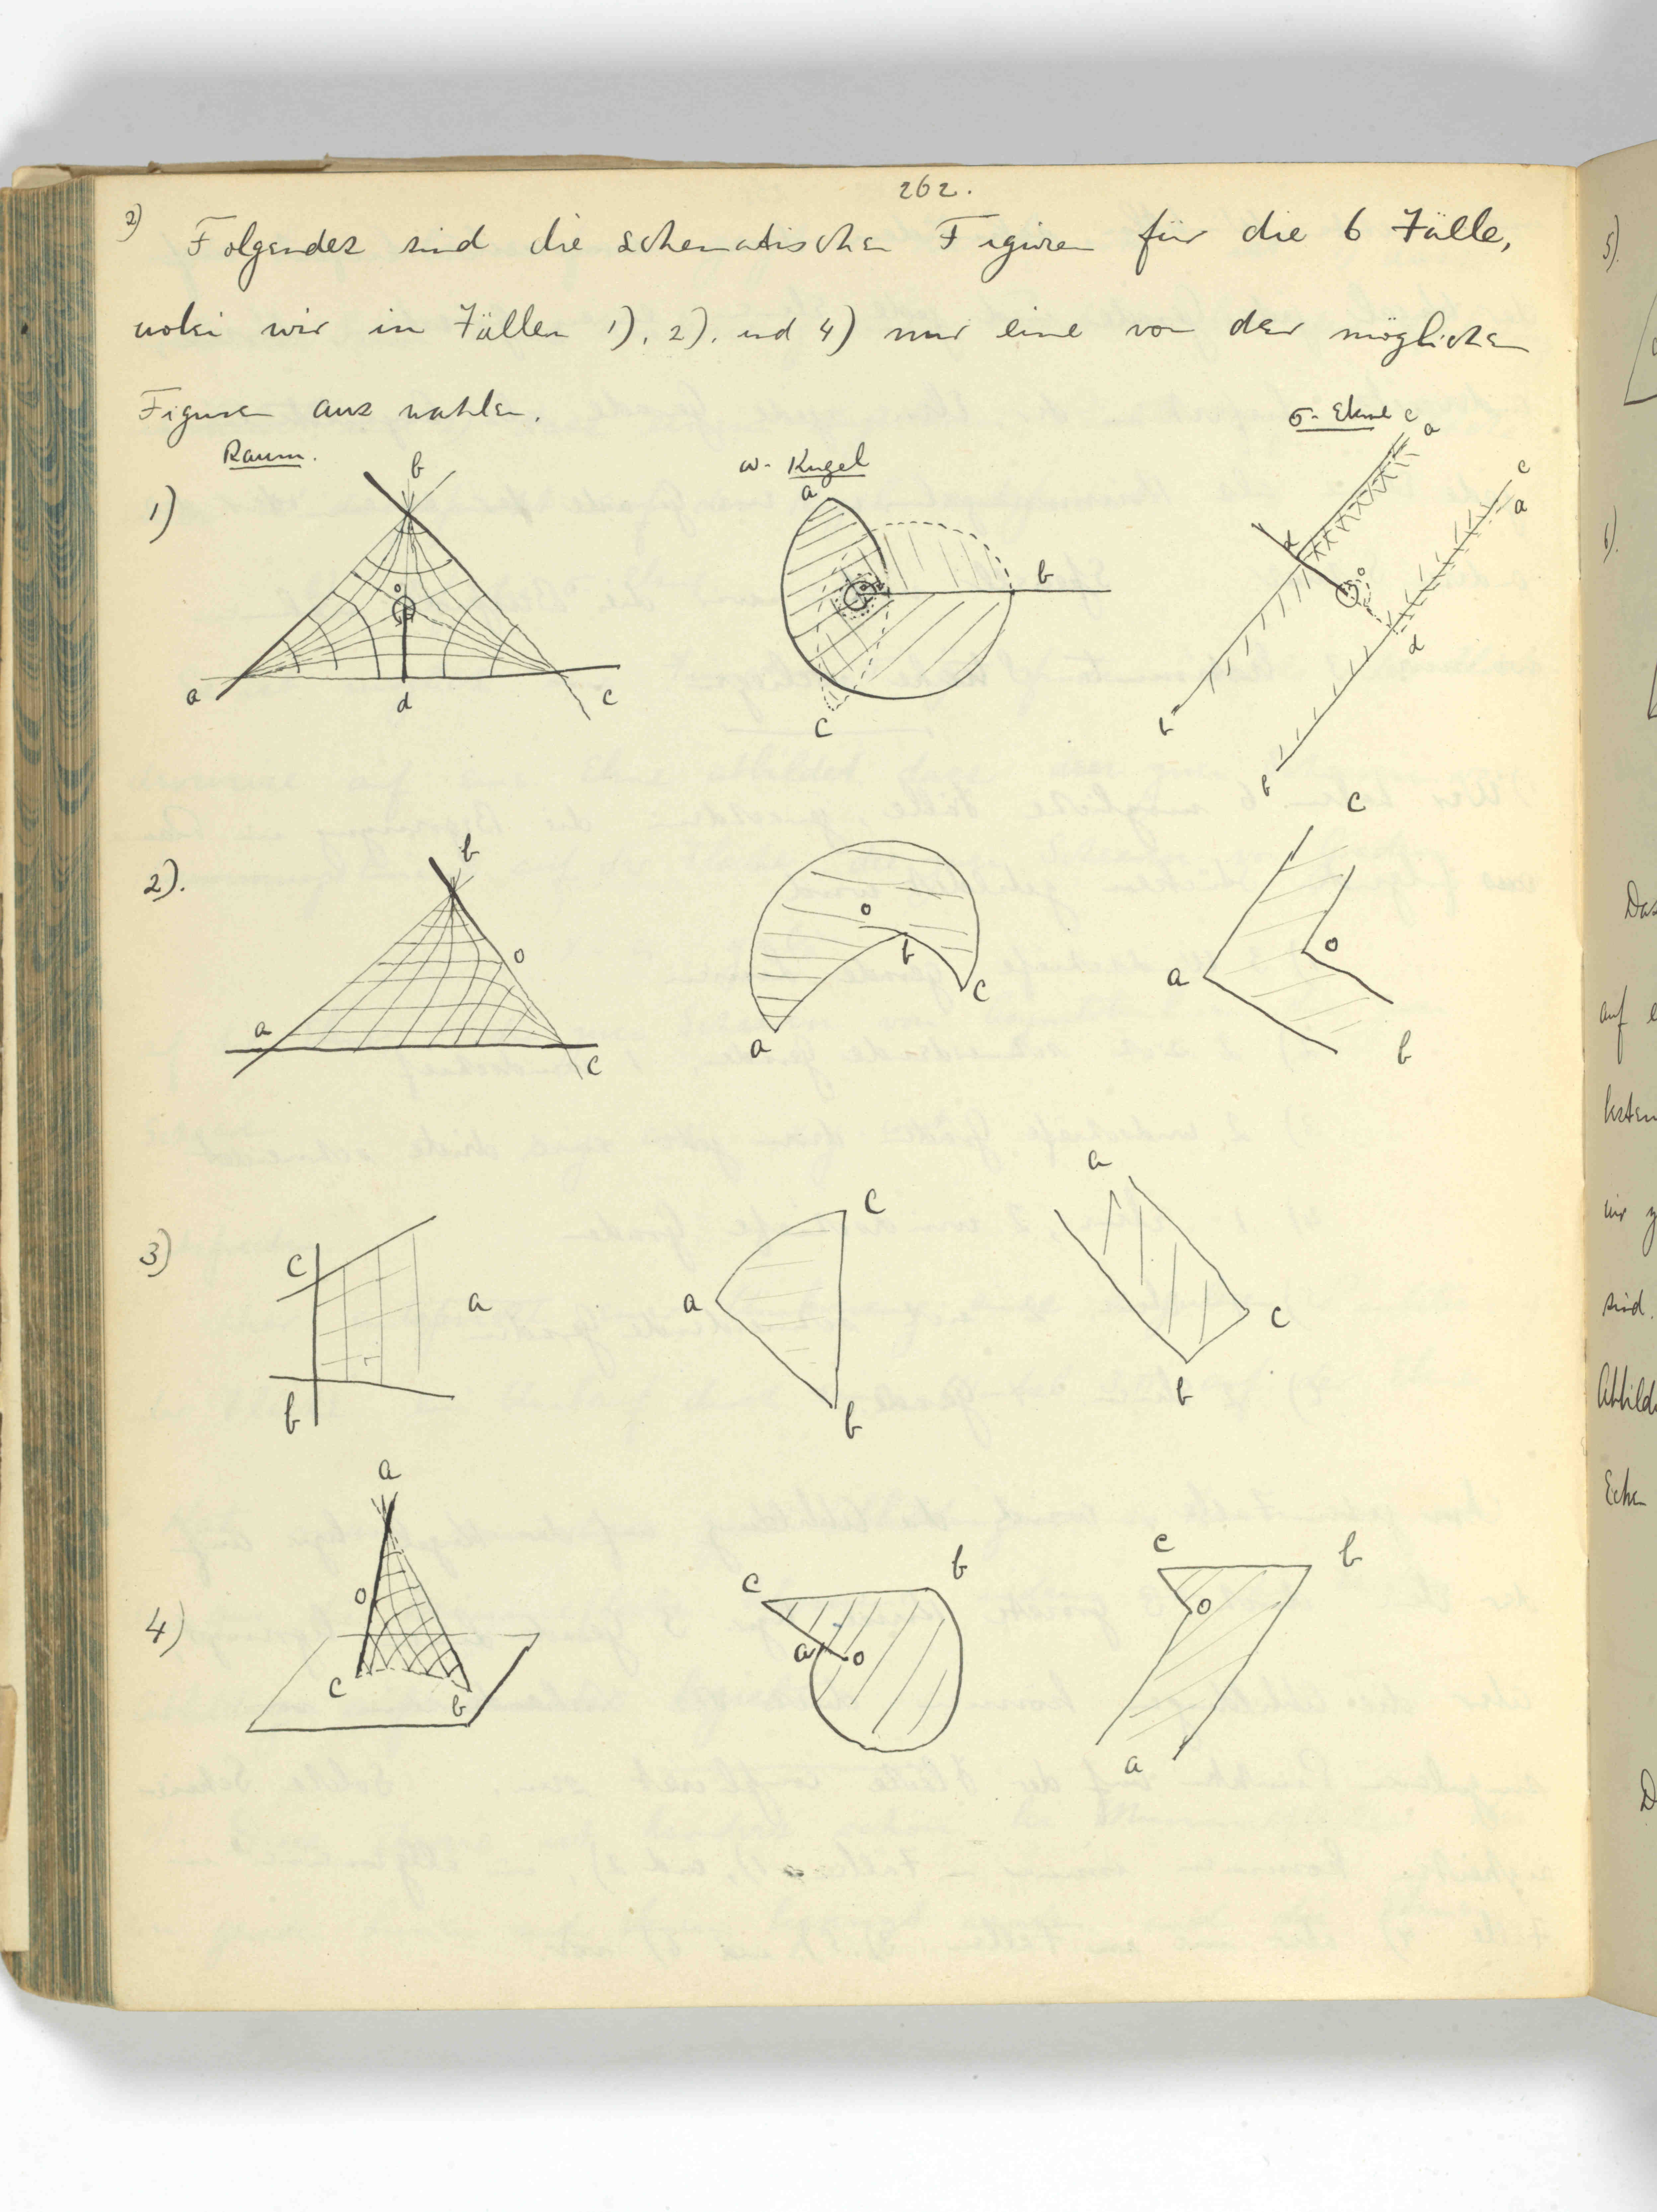 262.
2) Folgendes sind die schematischen Figuren für die 6 Fälle,
wobei wir in Fällen 1), 2), und 4) nur eine von der möglichen
Figuren aus wahlen.
Raum. ω- Kugel σ- Ebene
1)
b
o
a d c
a
b
c
c a
α o
c
a
α
b
b
2).
b
o
a
c
o
b
a c
c
o
a
b
3)
c
a
b
c
a
b
a
c
b
4)
a
o
c
b
c b
a o
c b
o
a
5).
6).
Das
auf
sind.